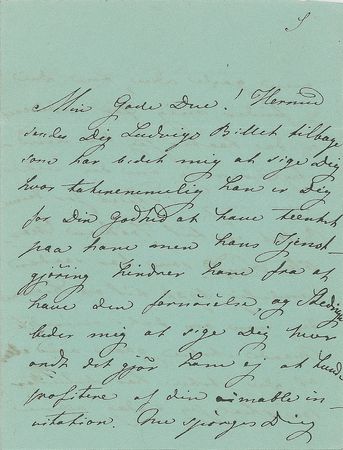 Min Gode Due! Hermed
sendes Dig Ludvigs Billet tilbage
som har bedet mig at sige Dig
hvor taknemmelig han er Dig
for Din Godhed at have tænkt
paa ham men hans Tjenst-
gjöring hindrer ham fra at
have den fornöielse, og
beder mig at sige Dig hvor
ondt det gjör ham ej at kunde
profitere af din aimable in-
vitation. Nu spörges Dig